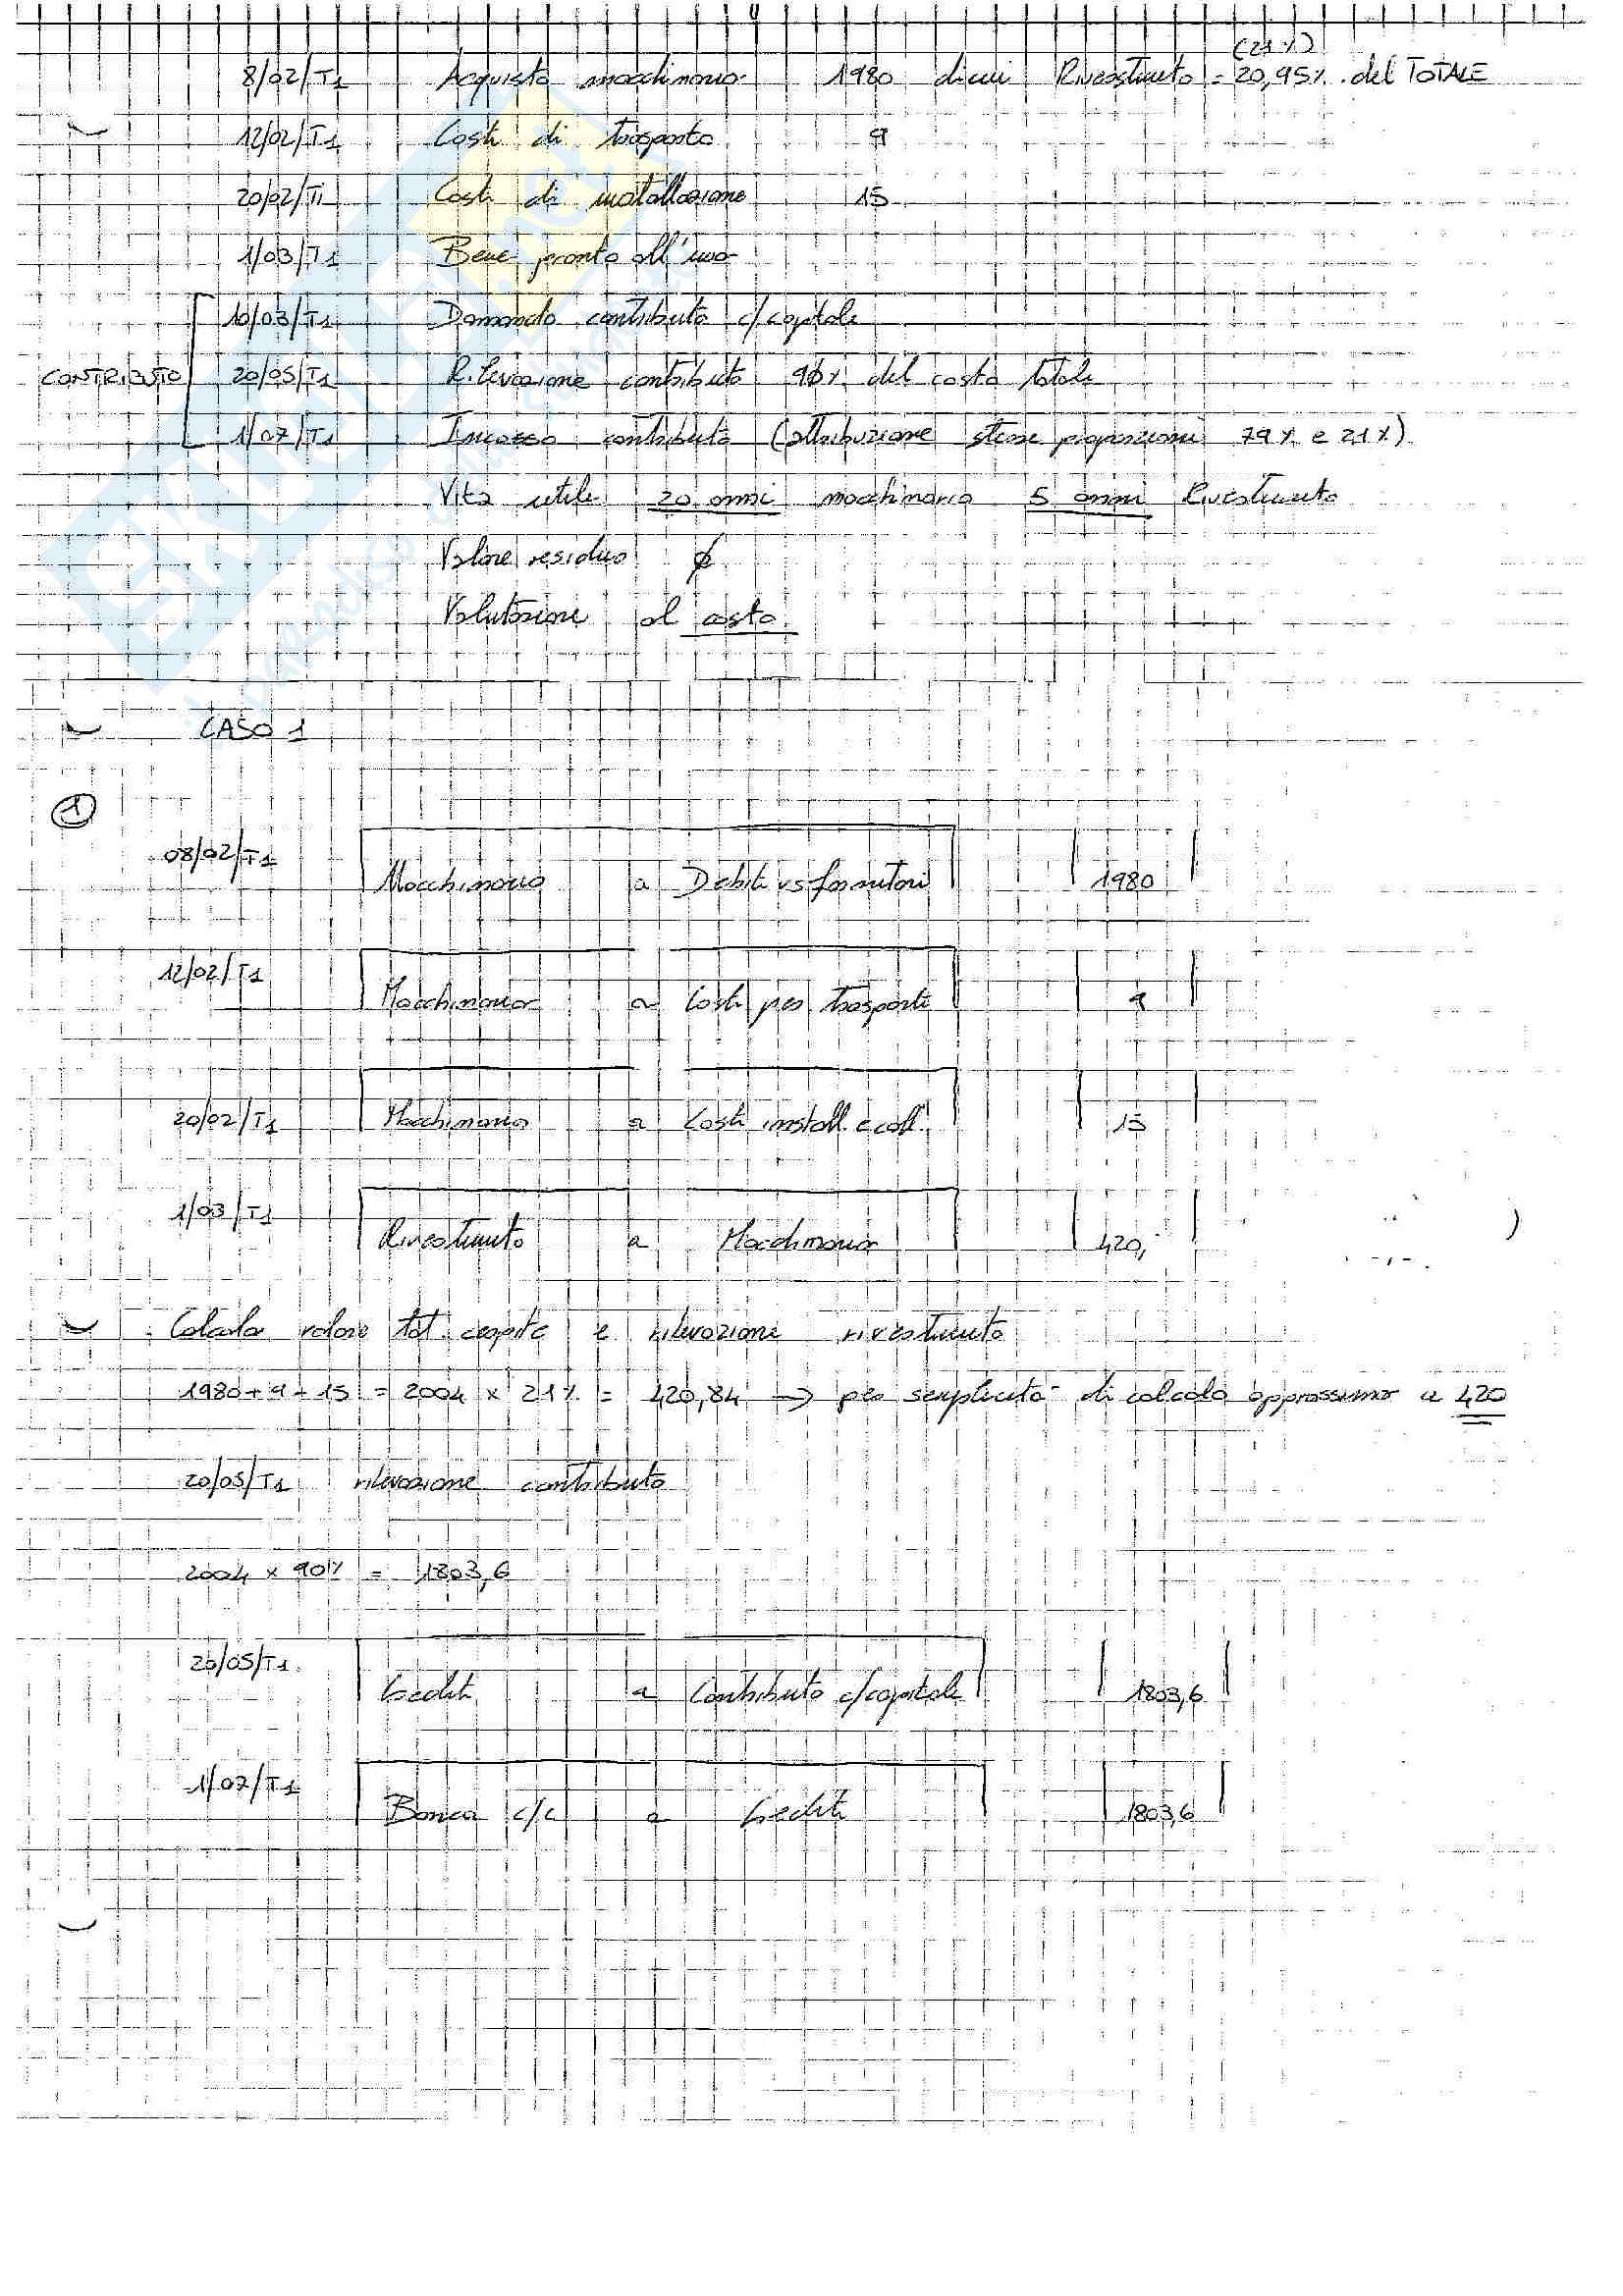 (21%)
8/02/T1 Acquisto macchinario 1980 di cui Rivestimento = 20,95% del TOTALE
12/02/T1 Costi di trasporto 9
20/02/T1 Costi di installazione 15
1/03/T1 Bene pronto all'uso
10/03/T1 Domanda contributo c/capitale
CONTRIBUTO 20/05/T1 Rilevazione contributo 90% del costo totale
1/07/T1 Incasso contributo (attribuzione stesse proporzioni 79% e 21%)
Vita utile 20 anni macchinario 5 anni Rivestimento
Valore residuo ∅
Valutazione al costo
CASO 1
1
08/02/T1
Macchinario a Debiti vs fornitori 1980
12/02/T1
Macchinario a Costi per trasporti 9
20/02/T1 Macchinario a Costi install. e coll. 15
1/03/T1
Rivestimento a Macchinario 420,
Calcolo valore tot. cespite e rilevazione rivestimento
1980 + 9 + 15 = 2004 x 21% = 420,84 → per semplicità di calcolo approssimo a 420
20/05/T1 rilevazione contributo
2004 x 90% = 1803,6
20/05/T1
Crediti a Contributo c/capitale 1803,6
1/07/T1
Banca c/c a Crediti 1803,6